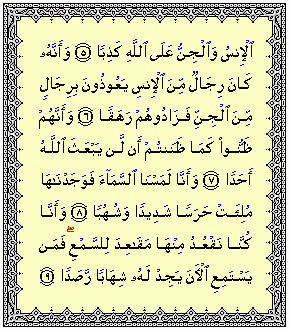 ٱلْإِنسُ وَٱلْجِنُّ عَلَى ٱللَّهِ كَذِبًا ٥ وَأَنَّهُۥ
كَانَ رِجَالٌ مِّنَ ٱلْإِنسِ يَعُوذُونَ بِرِجَالٍ
مِّنَ ٱلْجِنِّ فَزَادُوهُمْ رَهَقًا ٦ وَأَنَّهُمْ
ظَنُّوا۟ كَمَا ظَنَنتُمْ أَن لَّن يَبْعَثَ ٱللَّهُ
أَحَدًا ٧ وَأَنَّا لَمَسْنَا ٱلسَّمَآءَ فَوَجَدْنَٰهَا
مُلِئَتْ حَرَسًا شَدِيدًا وَشُهُبًا ٨ وَأَنَّا
كُنَّا نَقْعُدُ مِنْهَا مَقَٰعِدَ لِلسَّمْعِ ۖ فَمَن
يَسْتَمِعِ ٱلْءَانَ يَجِدْ لَهُۥ شِهَابًا رَّصَدًا ٩